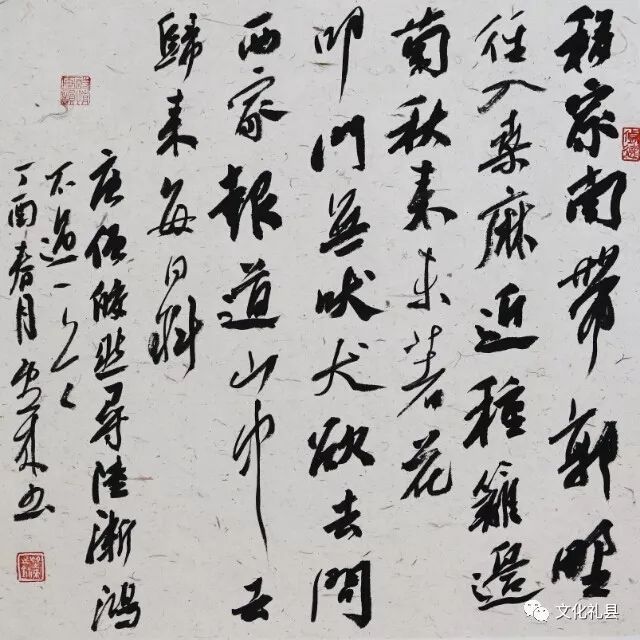 移家南帶郭野
径入桑麻近種籬邊
菊秋来未著花
叩門無吠犬欲去問
西家報道山中去
歸来每日斜
唐僧皎然尋陸漸鴻
不遇一
丁酉春月书
文化礼县